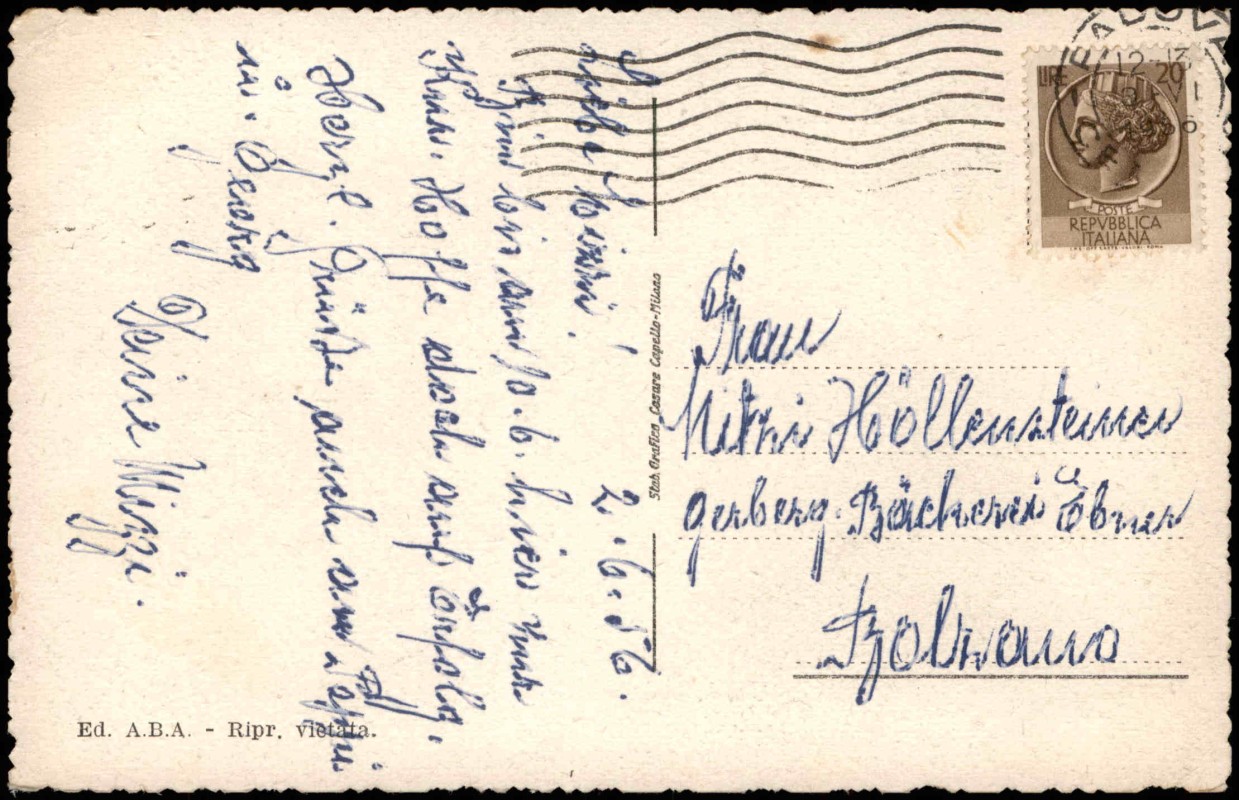 2. 6. 56.
Liebe Mizzi!
Bin bis auf 10. 6. hier zur
Kur. Hoffe doch auf Erfolg.
Herzl. Grüße auch an Pepi
u. Georg
Deine Mizzi.
Frau
Mitzi Höllensteiner
gerberg. Bäckerei Ebner
Bolzano
LIRE 20
POSTE
REPVBBLICA
ITALIANA
12-13
VI
Stab. Grafico Cesare Capello-Milano
Ed. A.B.A. - Ripr. vietata.